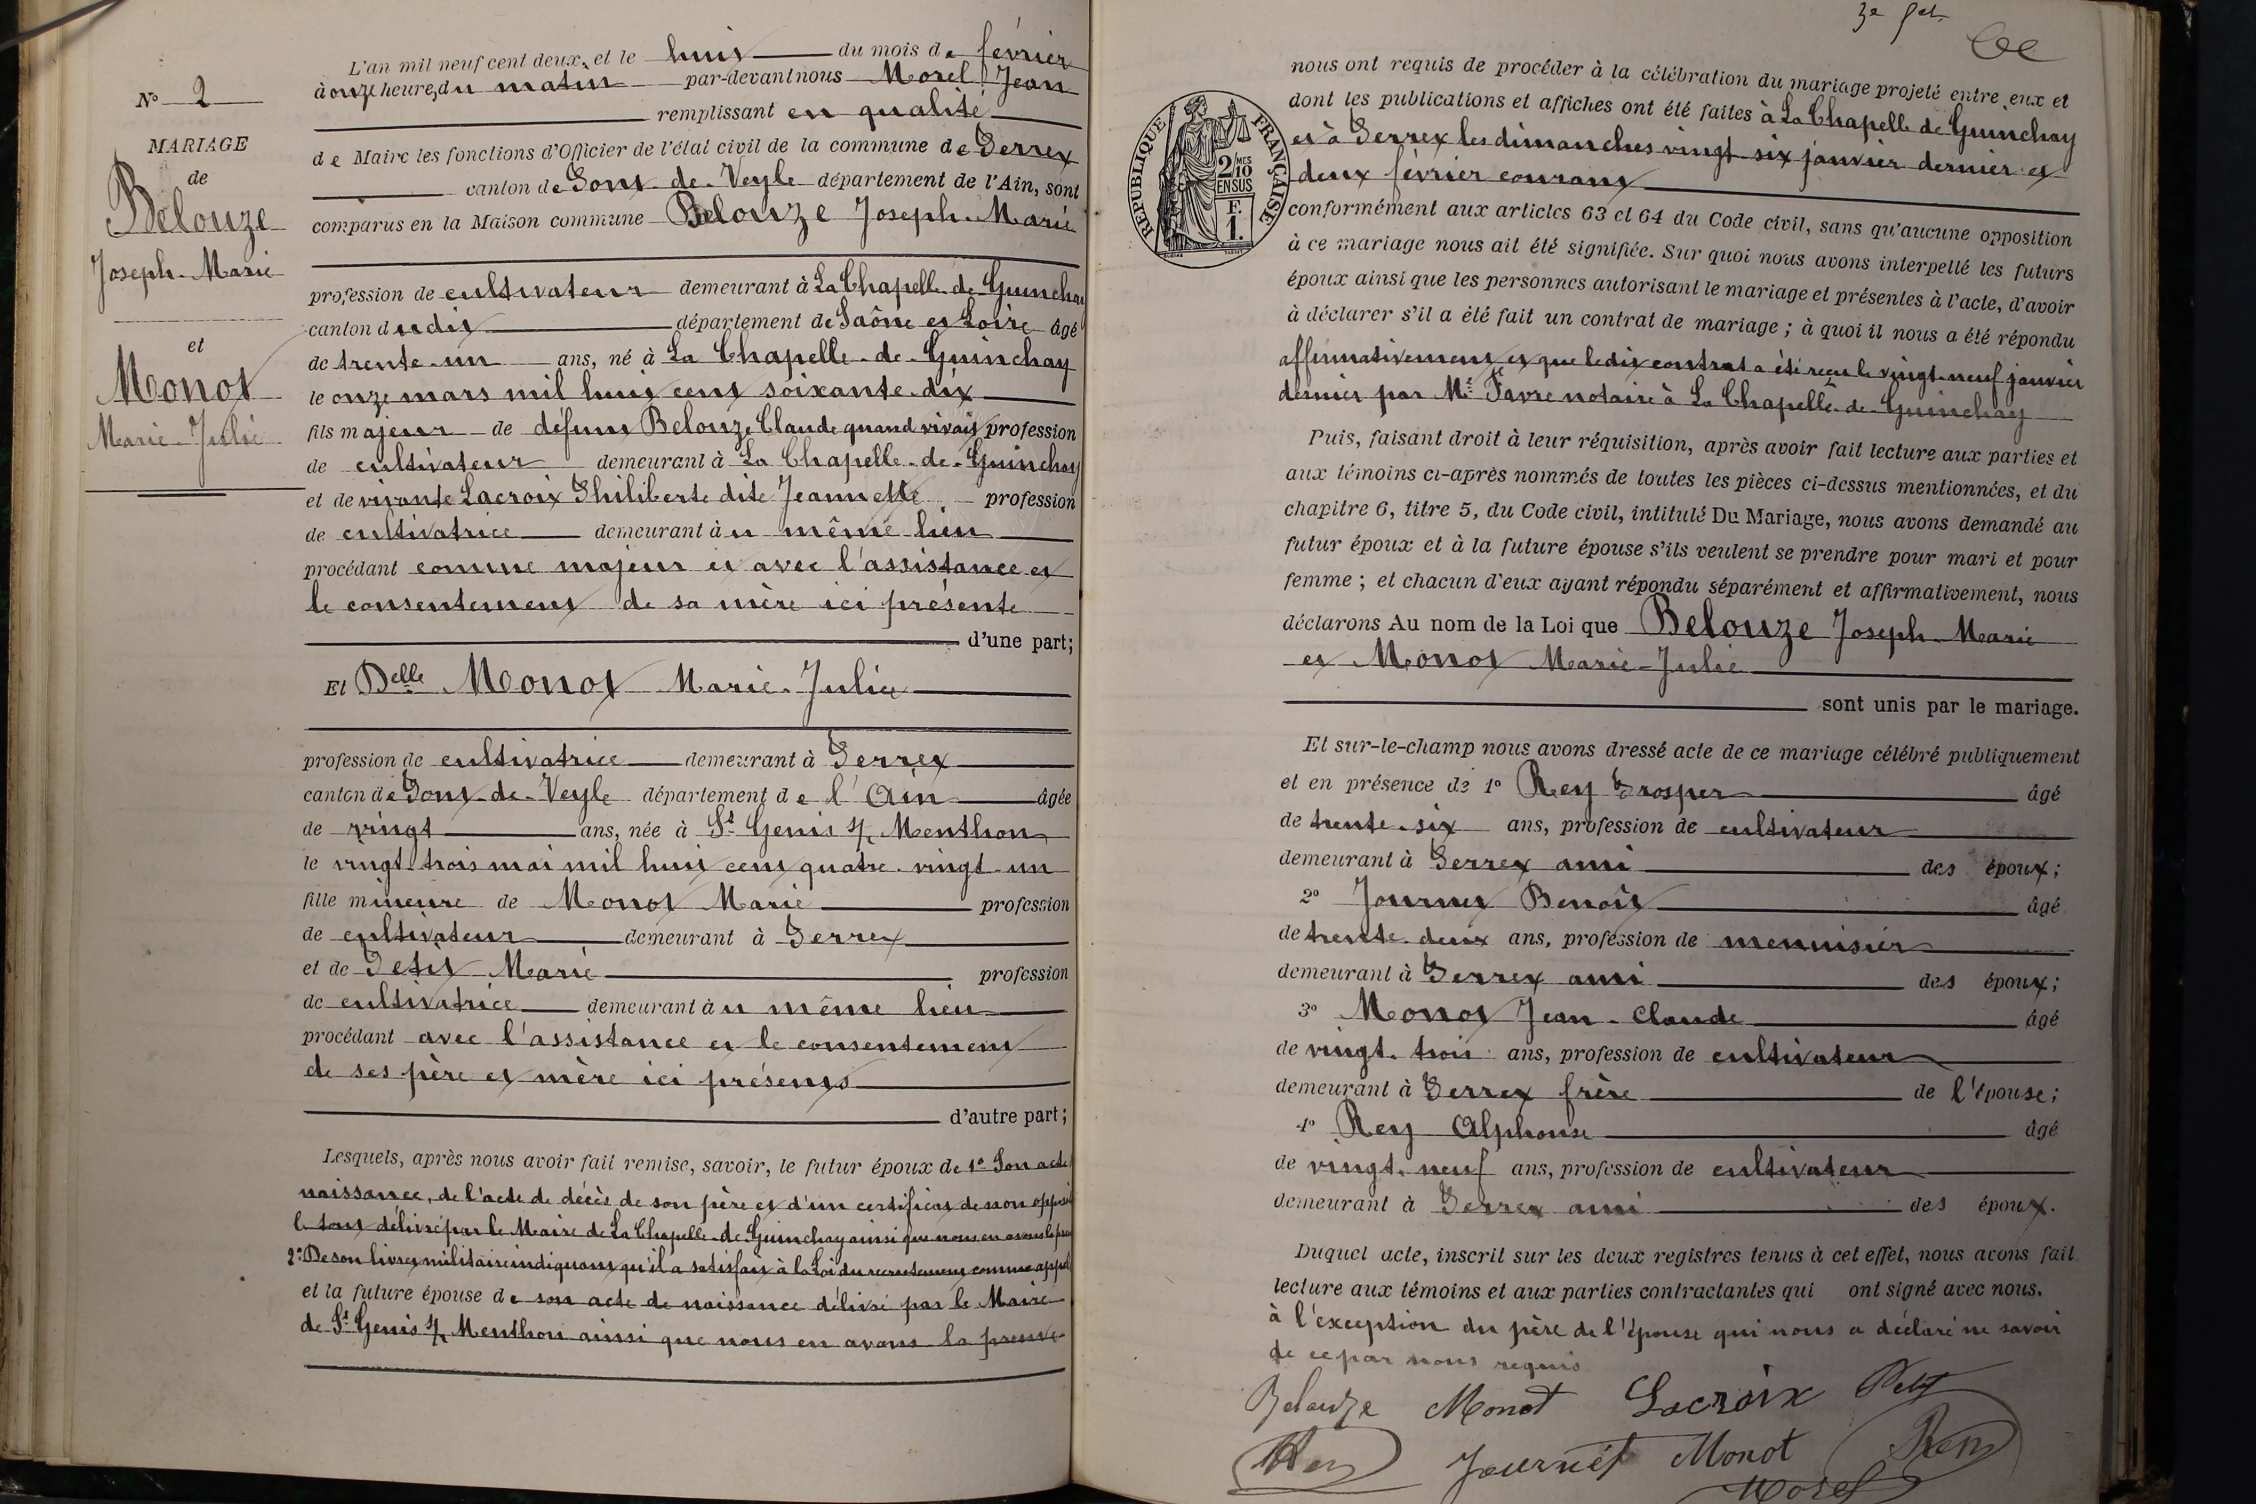 N° 2
MARIAGE
de
Belouze
Joseph-Marie
et
Monot
Marie-Julie
L'an mil neuf cent deux, et le huit du mois de février
à onze heures du matin par-devant nous Morel Jean
remplissant en qualité
de Maire les fonctions d'Officier de l'état civil de la commune de Perrex
canton de Pont-de-Veyle département de l'Ain, sont
comparus en la Maison commune Belouze Joseph-Marie
profession de cultivateur demeurant à La Chapelle-de-Guinchay
canton dudit département de Saône et Loire âgé
de trente-un ans, né à La Chapelle-de-Guinchay
le onze mars mil huit cent soixante-dix
fils majeur de défunt Belouze Claude quand vivait profession
de cultivateur demeurant à La Chapelle-de-Guinchay
et de vivante Lacroix Philiberte dite Jeannette profession
de cultivatrice demeurant au même lieu
procédant comme majeur et avec l'assistance et
le consentement de sa mère ici présente
d'une part;
Et Delle Monot Marie-Julie
profession de cultivatrice demeurant à Perrex
canton de Pont-de-Veyle département de l'Ain âgée
de vingt ans, née à St Genis s/ Menthon
le vingt-trois mai mil huit cent quatre-vingt-un
fille mineure de Monot Marie profession
de cultivateur demeurant à Perrex
et de Petit Marie profession
de cultivatrice demeurant au même lieu
procédant avec l'assistance et le consentement
de ses père et mère ici présents
d'autre part;
Lesquels, après nous avoir fait remise, savoir, le futur époux de 1° Son acte
naissance, de l'acte de décès de son père et d'un certificat de non opposi
le tout délivré par le Maire de La Chapelle-de-Guinchay ainsi que nous en avons la
2° De son livret militaire indiquant qu'il a satisfait à la Loi du recrutement comme appel
et la future épouse de son acte de naissance délivré par le Maire
de St Genis s/ Menthon ainsi que nous en avons la preuve
3e
nous ont requis de procéder à la célébration du mariage projeté entre eux et
dont les publications et affiches ont été faites à La Chapelle de Guinchay
et à Perrex les dimanches vingt-six janvier dernier et
deux février courant
RÉPUBLIQUE FRANÇAISE
2/10 MES
EN SUS
F.
1.
conformément aux articles 63 et 64 du Code civil, sans qu'aucune opposition
à ce mariage nous ait été signifiée. Sur quoi nous avons interpellé les futurs
époux ainsi que les personnes autorisant le mariage et présentes à l'acte, d'avoir
à déclarer s'il a été fait un contrat de mariage; à quoi il nous a été répondu
affirmativement et que ledit contrat a été reçu le vingt-neuf janvier
dernier par Me Favre notaire à La Chapelle-de-Guinchay
Puis, faisant droit à leur réquisition, après avoir fait lecture aux parties et
aux témoins ci-après nommés de toutes les pièces ci-dessus mentionnées, et du
chapitre 6, titre 5, du Code civil, intitulé Du Mariage, nous avons demandé au
futur époux et à la future épouse s'ils veulent se prendre pour mari et pour
femme; et chacun d'eux ayant répondu séparément et affirmativement, nous
déclarons Au nom de la Loi que Belouze Joseph-Marie
et Monot Marie-Julie
sont unis par le mariage.
Et sur-le-champ nous avons dressé acte de ce mariage célébré publiquement
et en présence de 1° Rey Prosper âgé
de trente-six ans, profession de cultivateur
demeurant à Perrex ami des époux;
2° Journet Benoît âgé
de trente-deux ans, profession de menuisier
demeurant à Perrex ami des époux;
3° Monot Jean-Claude âgé
de vingt-trois ans, profession de cultivateur
demeurant à Perrex frère de l'épouse;
4° Rey Alphonse âgé
de vingt-neuf ans, profession de cultivateur
demeurant à Perrex ami des époux.
Duquel acte, inscrit sur les deux registres tenus à cet effet, nous avons fait
lecture aux témoins et aux parties contractantes qui ont signé avec nous.
à l'exception du père de l'épouse qui nous a déclaré ne savoir
de ce par nous requis
Belouze Monot Lacroix Petit
Rey Journet Monot Rey
Morel